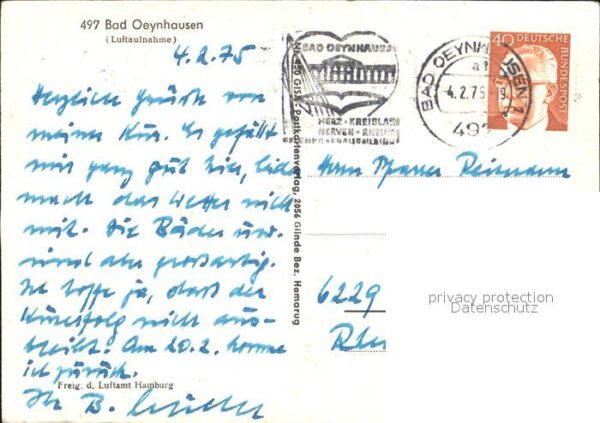 497 Bad Oeynhausen
(Luftaufnahme)
4.2.75
Herzliche Grüße von
meiner Kur. Es gefällt
mir ganz gut hier, leider
macht das Wetter nicht
mit. Die Bäder usw.
sind aber großartig.
Ich hoffe ja, daß der
Kurerfolg nicht aus-
bleibt. Am 20.2. komme
ich zurück.
Freig. d. Luftamt Hamburg
Ihr B.
GISA-Postkartenverlag, 2056 Glinde Bez. Hamburg
BAD OEYNHAUSEN
HERZ · KREISLAUF
NERVEN · RHEUMA
BAD OEYNHAUSEN 1
-4.2.75-19
497
40 DEUTSCHE
BUNDESPOST
Herrn Pfarrer
6229
privacy protection
Datenschutz